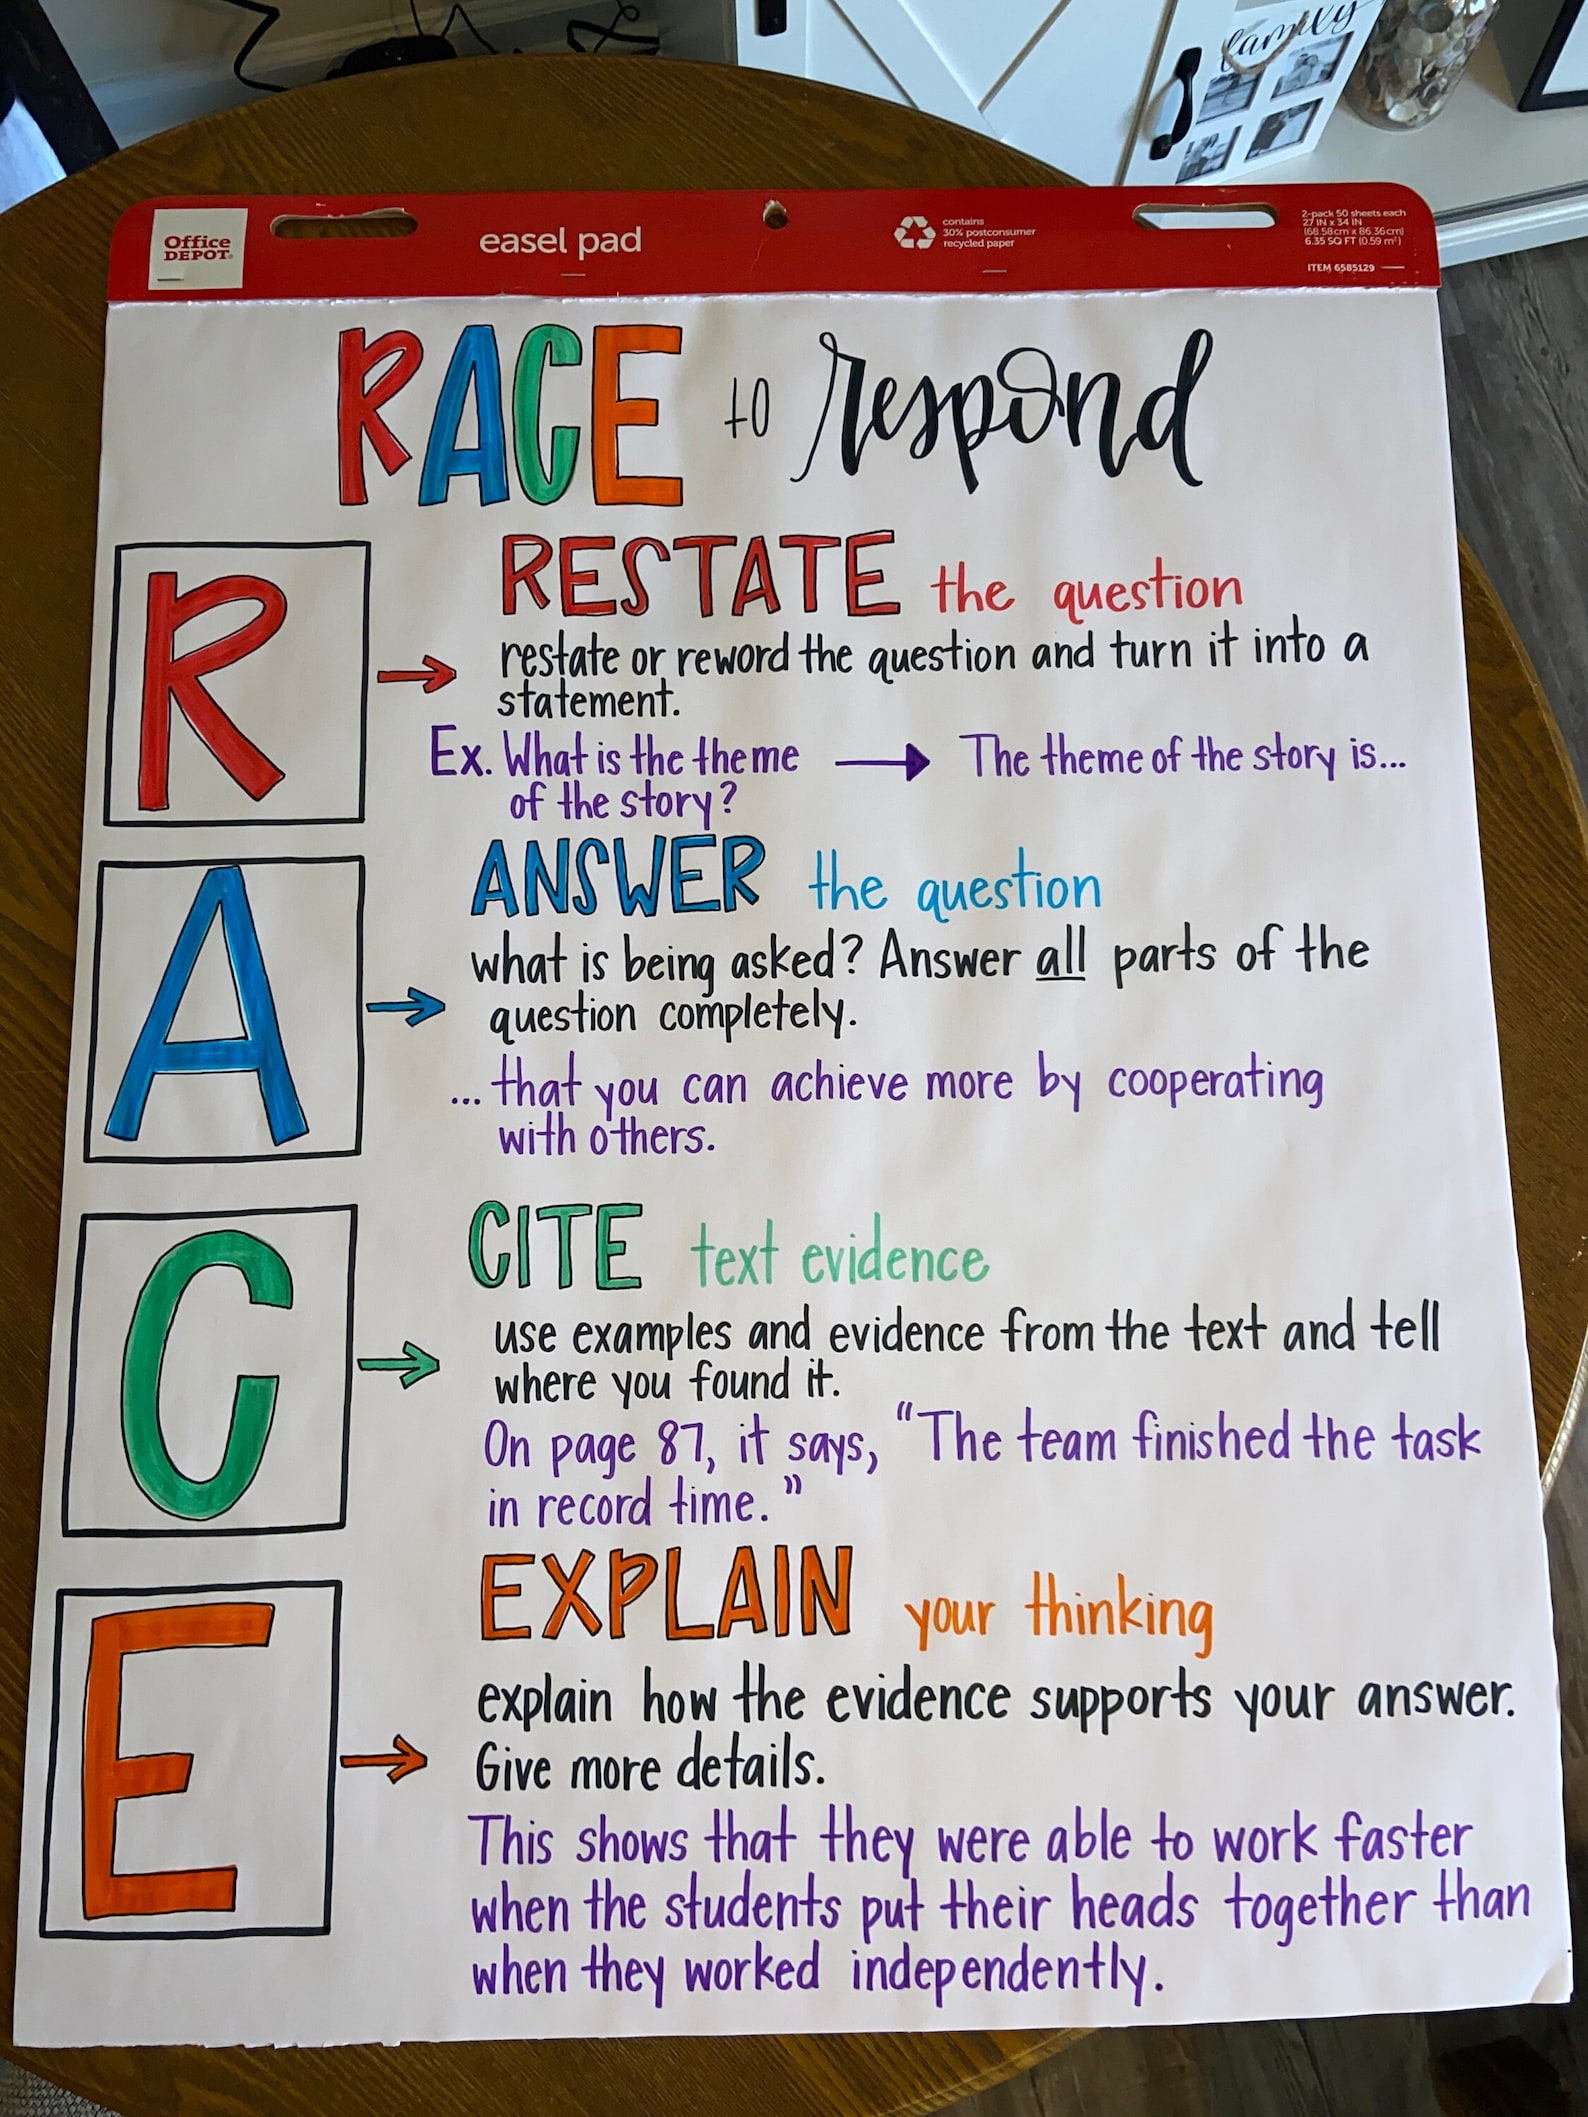 family
Office
DEPOT
easel pad
contains
30% postconsumer
recycled paper
2-pack 50 sheets each
27 IN x 34 IN
(68.58cm x 86.36cm)
6.35 SQ FT (0.59 m²)
ITEM 6585129
RACE to respond
R
RESTATE the question
restate or reword the question and turn it into a
statement.
Ex. What is the theme → The theme of the story is...
of the story?
A
ANSWER the question
what is being asked? Answer all parts of the
question completely.
... that you can achieve more by cooperating
with others.
C
CITE text evidence
use examples and evidence from the text and tell
where you found it.
On page 87, it says, “The team finished the task
in record time.”
E
EXPLAIN your thinking
explain how the evidence supports your answer.
Give more details.
This shows that they were able to work faster
when the students put their heads together than
when they worked independently.